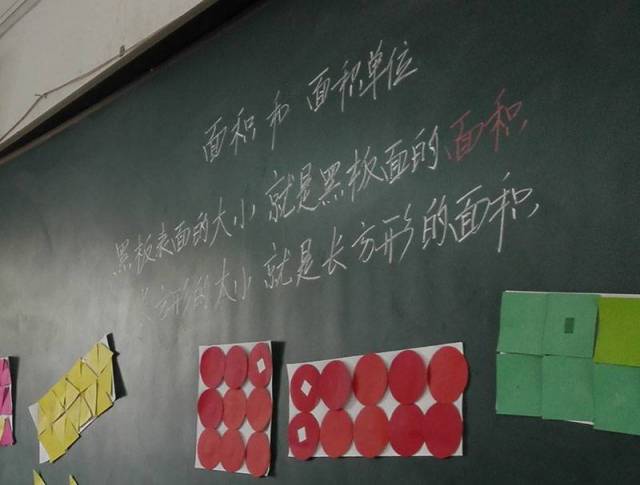 面积和 面积单位
黑板表面的大小就是黑板面的面积
长方形的大小就是长方形的面积